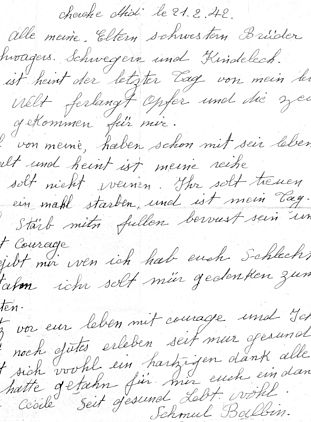 cherche Midi le 21.2.42.
alle meine. Eltern schwestern Brüder
hwagers. Schwegern und Kindelech.
ist heint der letzter Tag von mein le
velt ferlangt Opfer und die zei
gekommen für mir.
l von meine, haben schon mit seir leben
alt und heint ist meine reihe
solt nicht weinen. Ihr solt treuen
ein mahl starben, und ist mein Tag.
Stärb mitn fullen bevust sein un
t Courage
ejbt mir wen ich hab euch Schlechs
tahn ichr solt mür gedenken zum
ten.
z vor eur leben mit courage und Ich
noch gutes erleben seit mur gesund
t sich wohl ein hartzigen dank alle
hatte getahn für mir euch ein dan
Cécile Seit gesund Lebt wohl.
Schmul Balbin.